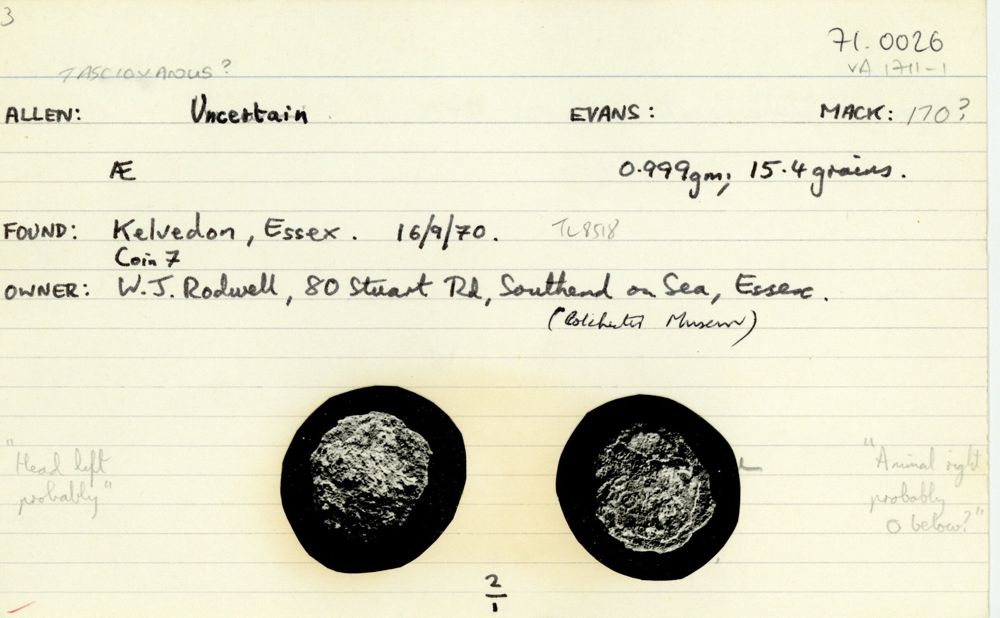 3
71.0026
TASCIOVANOUS?
VA 1711-1
ALLEN: Uncertain EVANS: MACK: 170?
Æ 0.999gm; 15.4 grains.
FOUND: Kelvedon, Essex. 16/9/70. TL8518
Coin 7
OWNER: W.J. Rodwell, 80 Stuart Rd, Southend on Sea, Essex.
(Colchester Museum)
"Head left
probably"
"Animal right
probably
O below?"
2
1